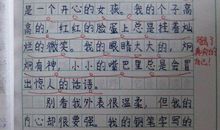 是一个开心的女孩。我的个子高
高的，红红的脸蛋上总是挂着灿
烂的微笑。我的眼睛大大的，炯
炯有神，小小的嘴巴里总是会冒
出惊人的话语。
别看我外表很温柔，但我的
内心却很要强。我的钢笔字写的